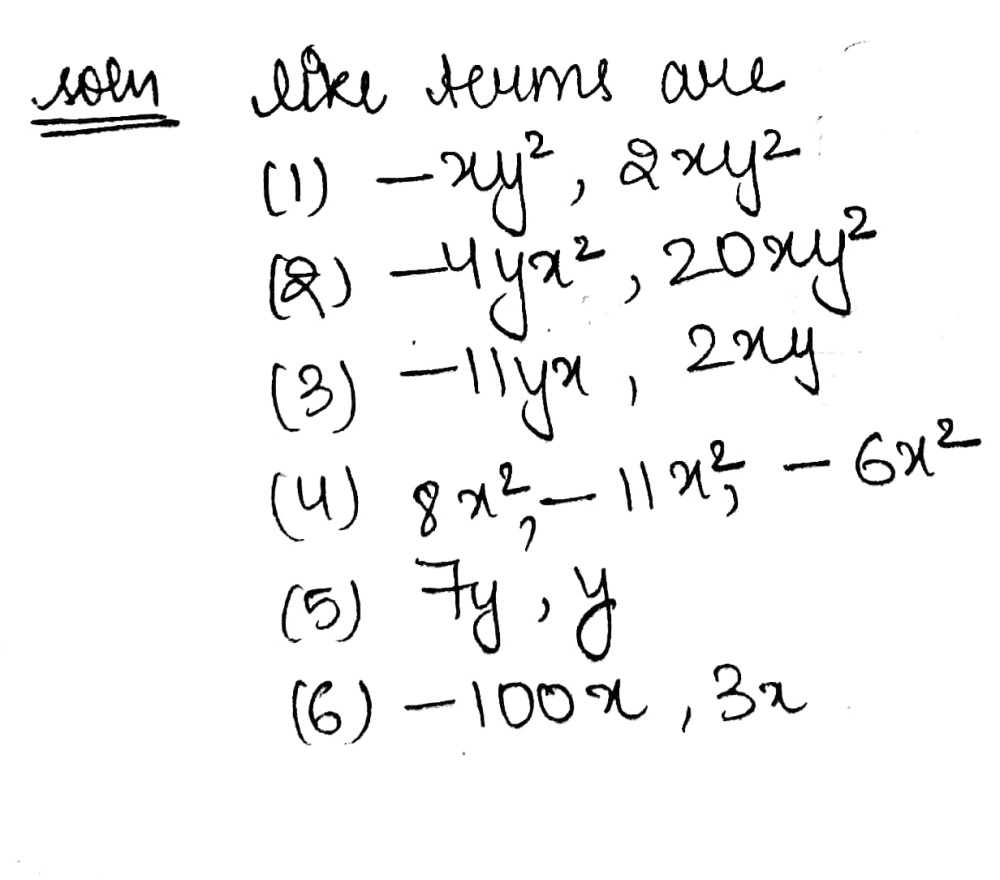 soln like terms are
(1) -xy², 2xy²
(2) -4yx², 20xy²
(3) -11yx, 2xy
(4) 8x², -11x², -6x²
(5) 7y, y
(6) -100x, 3x